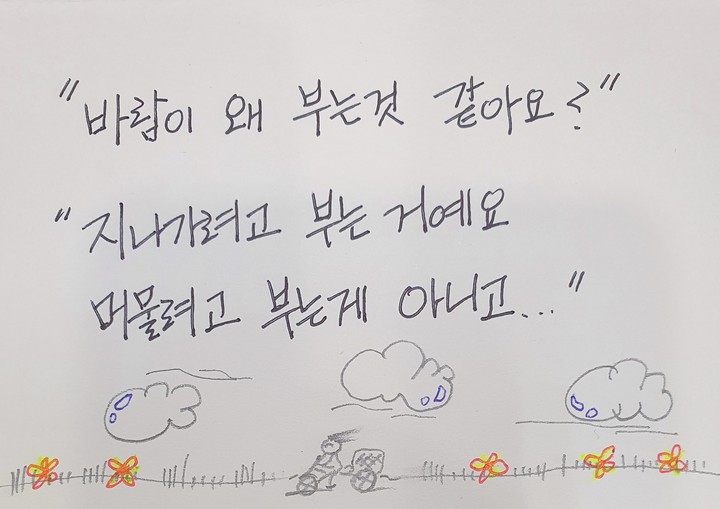 "바람이 왜 부는것 같아요?"
"지나가려고 부는 거예요
머물려고 부는게 아니고..."